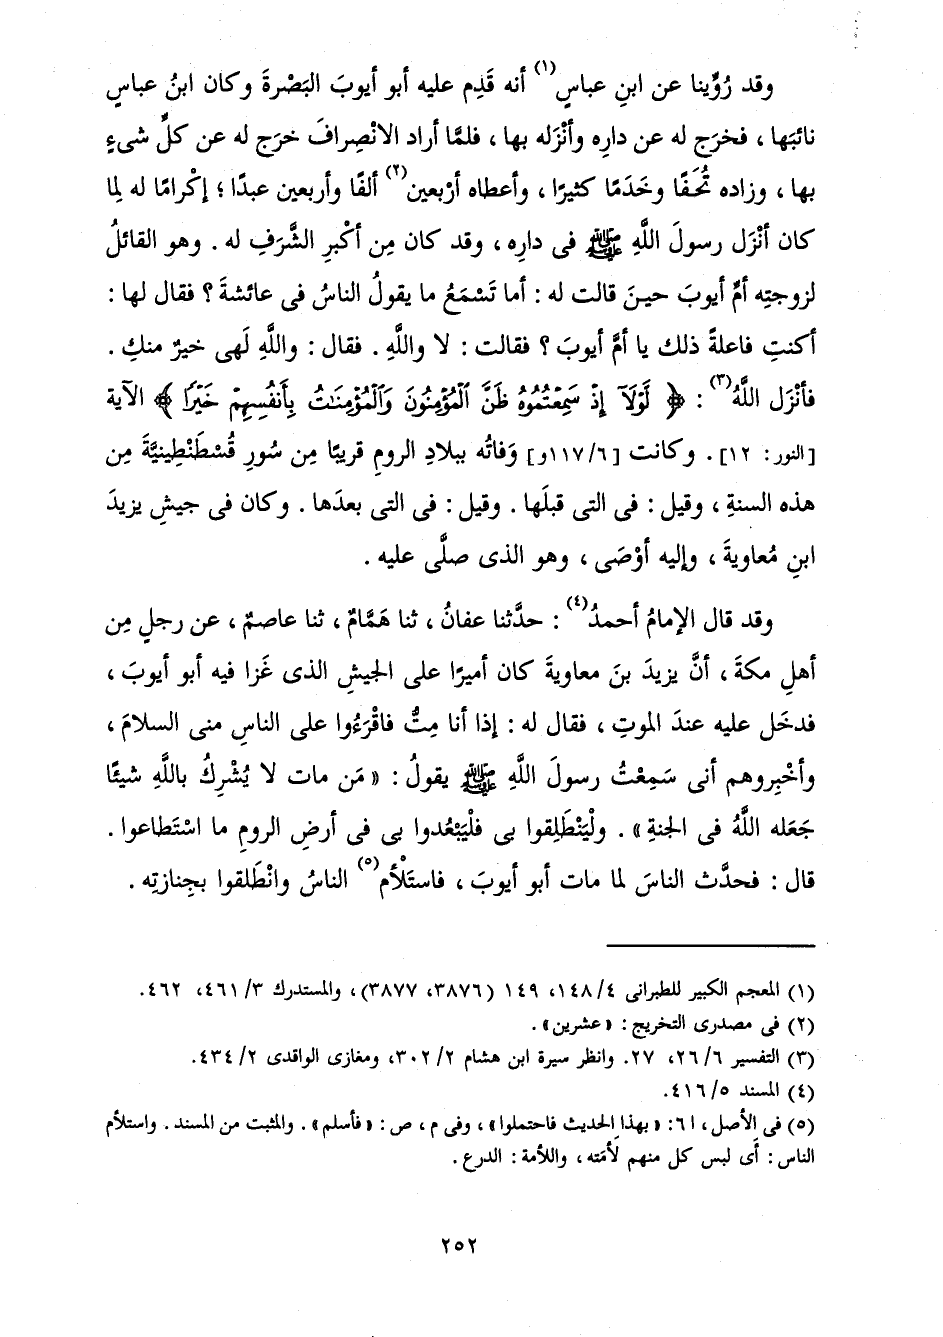 وقد رُوِّينا عن ابنِ عباسٍ(١) أنه قَدِم عليه أبو أيوبَ البَصْرةَ وكان ابنُ عباسٍ
نائبَها ، فخرَج له عن دارِه وأنْزَله بها ، فلمَّا أراد الانْصِرافَ خرَج له عن كلِّ شىءٍ
بها ، وزاده تُحَفًا وخَدَمًا كثيرًا ، وأعطاه أرْبعين(٢) ألفًا وأربعين عبدًا ؛ إكْرامًا له لِما
كان أنْزَل رسولَ اللَّهِ ﷺ فى دارِه ، وقد كان مِن أكْبرِ الشَّرَفِ له . وهو القائلُ
لزوجتِه أمِّ أيوبَ حينَ قالت له : أما تَسْمَعُ ما يقولُ الناسُ فى عائشةَ ؟ فقال لها :
أكنتِ فاعلةً ذلك يا أمَّ أيوبَ ؟ فقالت : لا واللَّهِ . فقال : واللَّهِ لَهى خيرٌ منكِ .
فأنْزَل اللَّهُ(٣) : ﴿ لَّوْلَآ إِذْ سَمِعْتُمُوهُ ظَنَّ ٱلْمُؤْمِنُونَ وَٱلْمُؤْمِنَٰتُ بِأَنفُسِهِمْ خَيْرًا ﴾ الآية
[النور: ١٢] . وكانت [٦/ ١١٧و] وَفاتُه ببلادِ الرومِ قريبًا مِن سُورِ قُسْطَنْطِينيَّةَ مِن
هذه السنةِ ، وقيل : فى التى قبلَها . وقيل : فى التى بعدَها . وكان فى جيشِ يزيدَ
ابنِ مُعاويةَ ، وإليه أوْصَى ، وهو الذى صلَّى عليه .
وقد قال الإمامُ أحمدُ(٤) : حدَّثنا عفانُ ، ثنا هَمَّامٌ ، ثنا عاصمٌ ، عن رجلٍ مِن
أهلِ مكةَ ، أنَّ يزيدَ بنَ معاويةَ كان أميرًا على الجيشِ الذى غَزا فيه أبو أيوبَ ،
فدخَل عليه عندَ الموتِ ، فقال له : إذا أنا مِتُّ فاقْرَءُوا على الناسِ منى السلامَ ،
وأخْبِروهم أنى سَمِعْتُ رسولَ اللَّهِ ﷺ يقولُ : « مَن مات لا يُشْرِكُ باللَّهِ شيئًا
جَعَله اللَّهُ فى الجنةِ » . ولْيَنْطَلِقوا بى فلْيَبْعُدوا بى فى أرضِ الرومِ ما اسْتَطاعوا .
قال : فحدَّث الناسَ لما مات أبو أيوبَ ، فاستَلْأم(٥) الناسُ وانْطَلقوا بجِنازتِه .
(١) المعجم الكبير للطبرانى ٤/ ١٤٨، ١٤٩ (٣٨٧٦، ٣٨٧٧)، والمستدرك ٣/ ٤٦١، ٤٦٢.
(٢) فى مصدرى التخريج : «عشرين» .
(٣) التفسير ٦/ ٢٦، ٢٧. وانظر سيرة ابن هشام ٢/ ٣٠٢، ومغازى الواقدى ٢/ ٤٣٤.
(٤) المسند ٥/ ٤١٦.
(٥) فى الأصل ، ا ٦: «بهذا الحديث فاحتملوا» ، وفى م ، ص : «فأسلم» . والمثبت من المسند . واستلأم
الناس : أى لبس كل منهم لأمَته ، واللأمة : الدرع .
٢٥٢